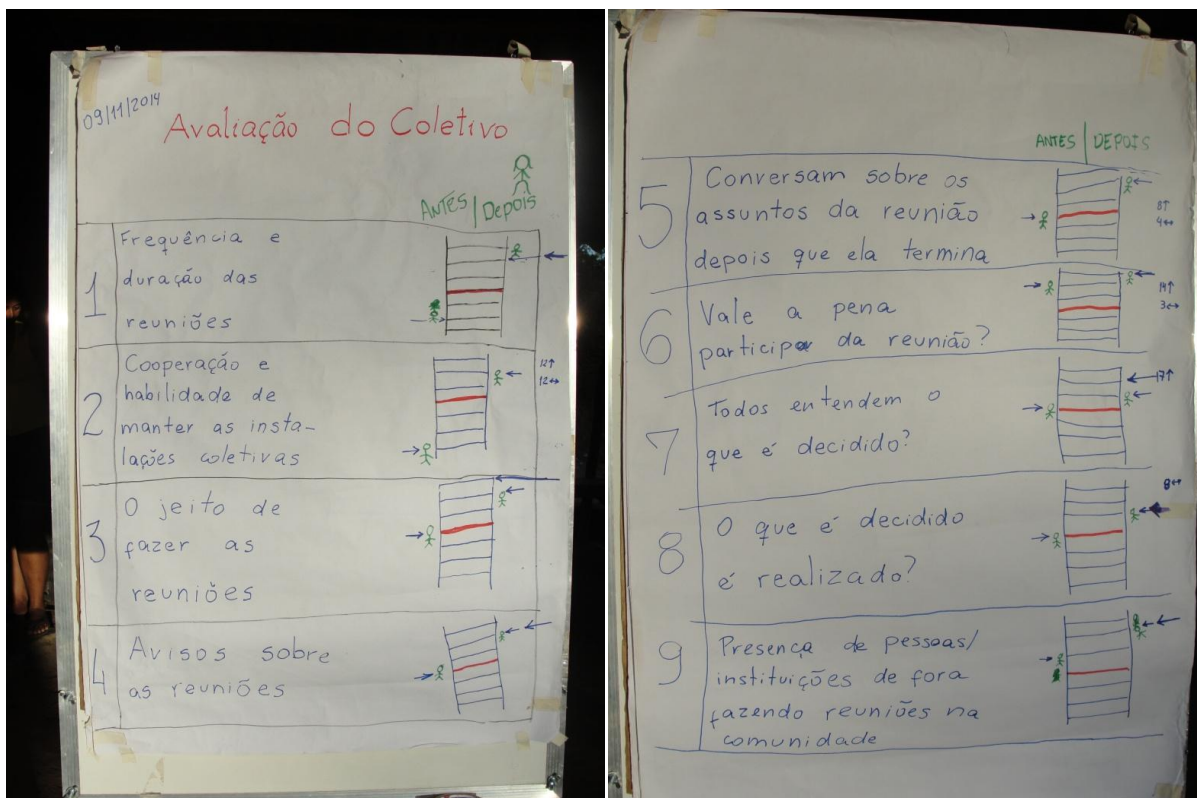 09/11/2014
Avaliação do Coletivo
ANTES | DEPOIS
1
Frequência e
duração das
reuniões
2
Cooperação e
habilidade de
manter as insta-
lações coletivas
12↑
12↔
3
O jeito de
fazer as
reuniões
4
Avisos sobre
as reuniões
ANTES | DEPOIS
5
Conversam sobre os
assuntos da reunião
depois que ela termina
8↑
4↔
6
Vale a pena
participar da reunião?
14↑
3↔
7
Todos entendem o
que é decidido?
17↑
8
O que é decidido
é realizado?
8↔
9
Presença de pessoas/
instituições de fora
fazendo reuniões na
comunidade